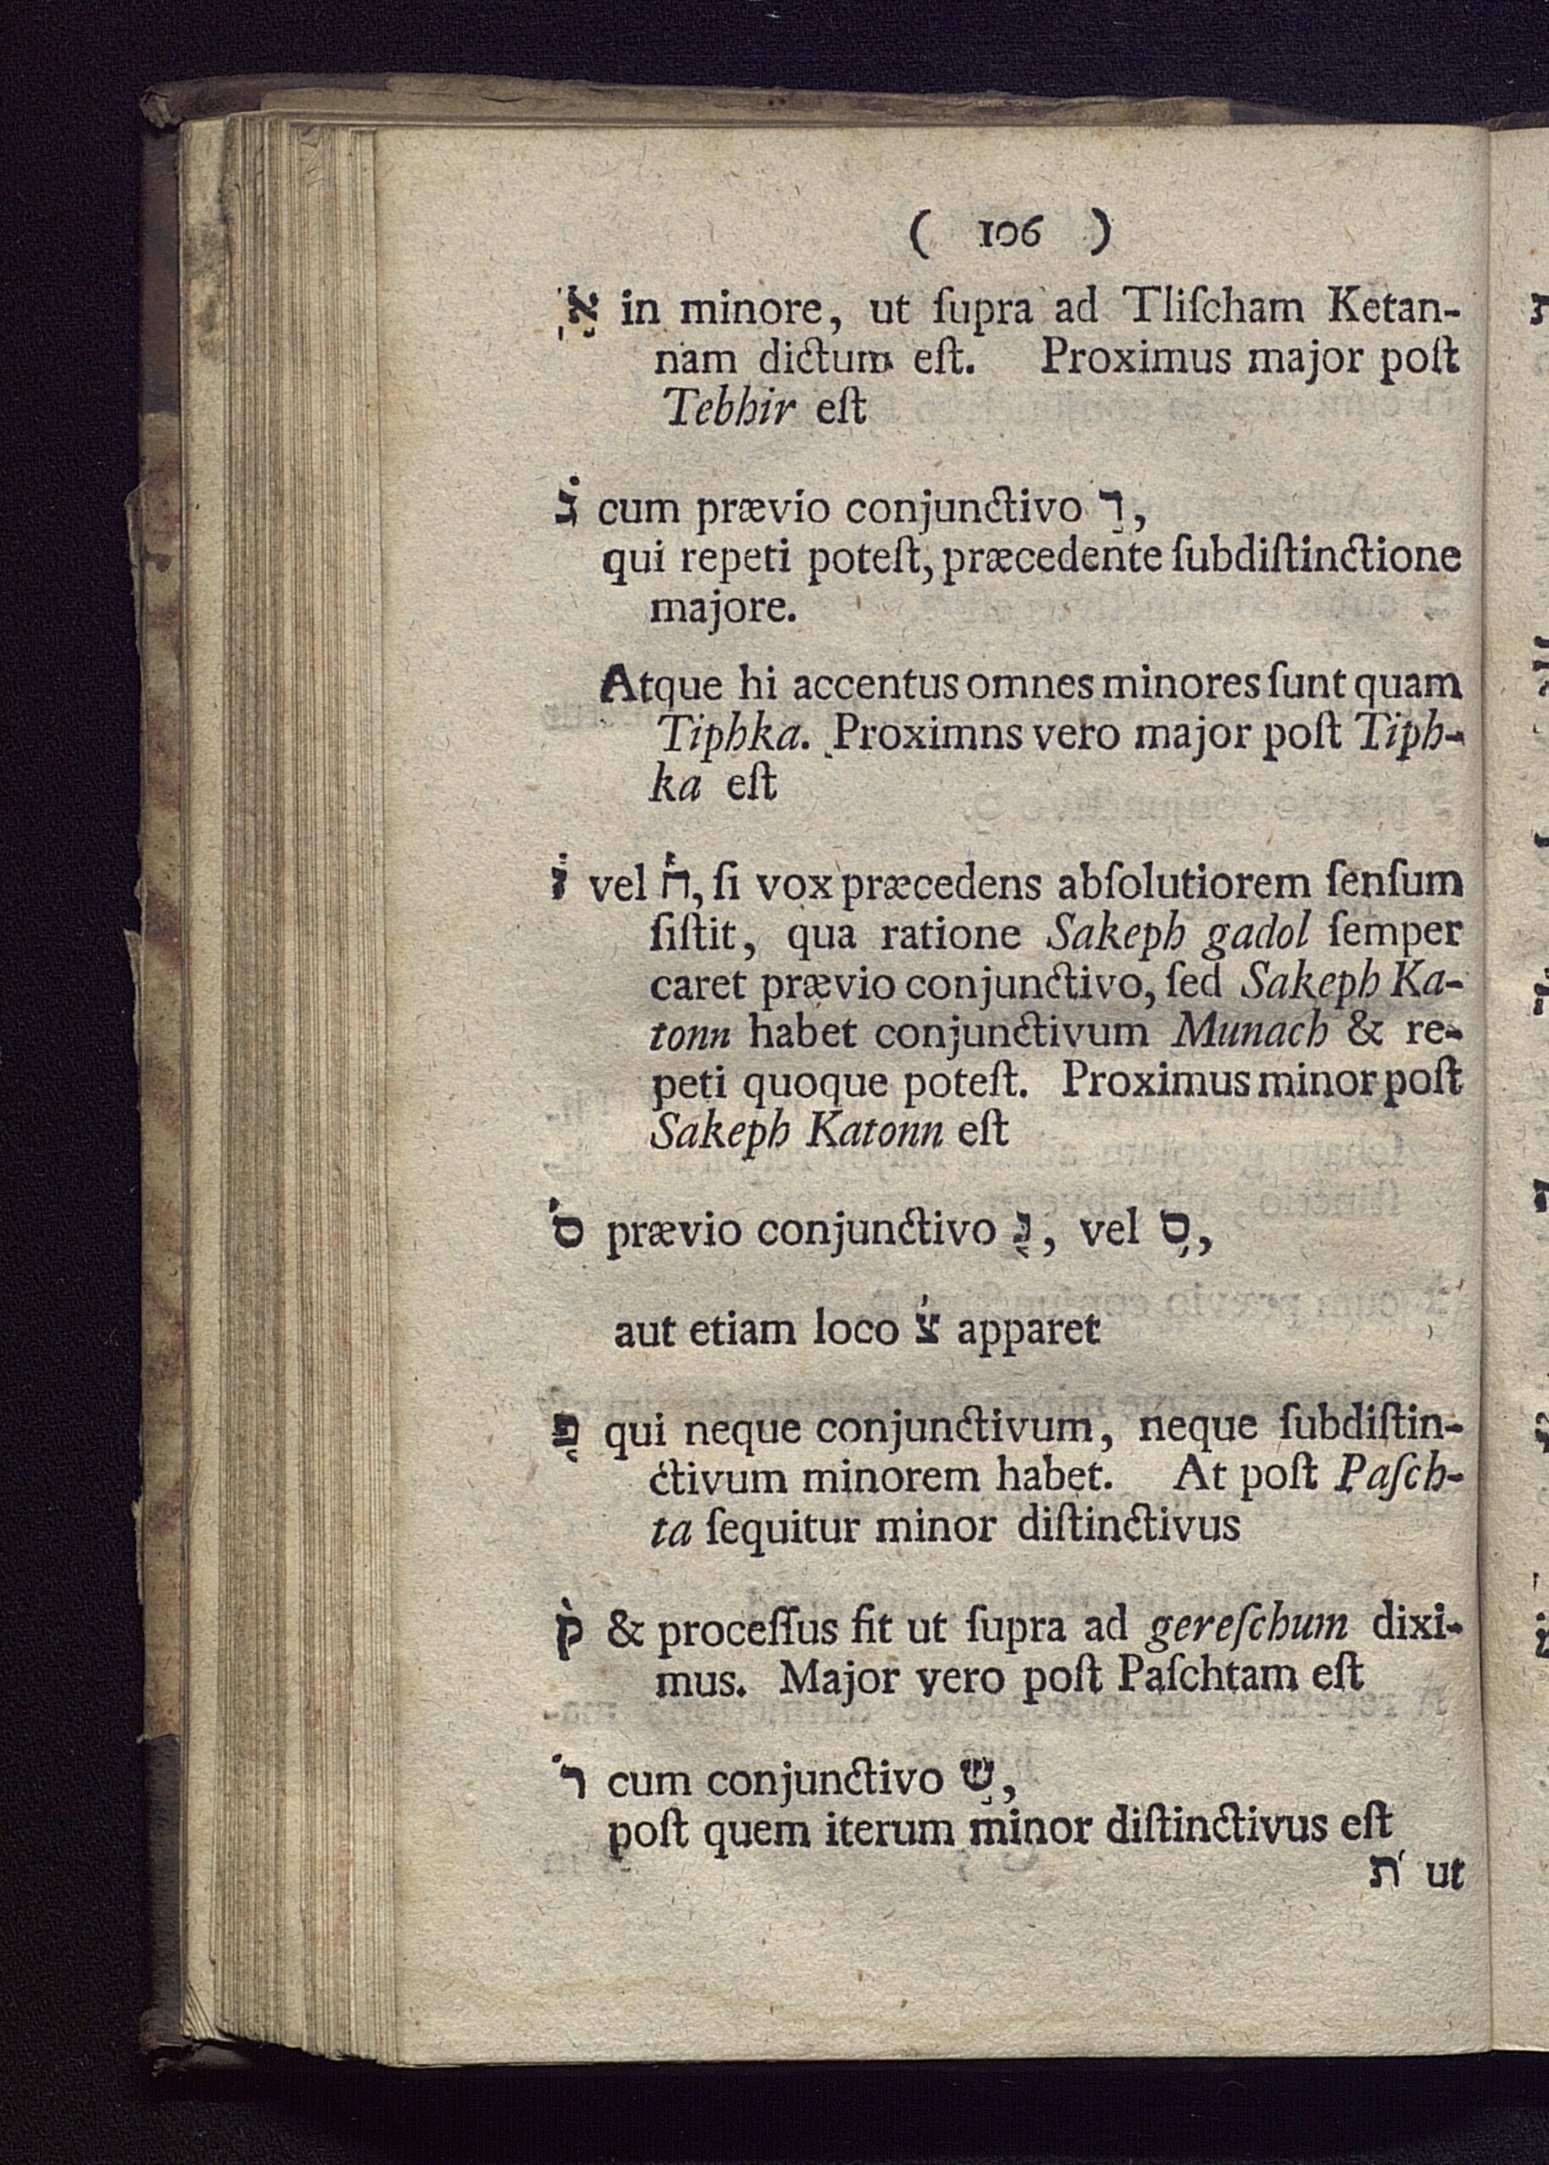 ( 106 )
א in minore, ut ſupra ad Tliſcham Ketan-
nam dictum eſt. Proximus major poſt
Tebhir eſt
ב֗ cum prævio conjunctivo ך֣,
qui repeti poteſt, præcedente ſubdiſtinctione
majore.
Atque hi accentus omnes minores ſunt quam
Tiphka. Proximns vero major poſt Tiph-
ka eſt
ו֔ vel ח֕, ſi vox præcedens abſolutiorem ſenſum
ſiſtit, qua ratione Sakeph gadol ſemper
caret prævio conjunctivo, ſed Sakeph Ka-
tonn habet conjunctivum Munach & re-
peti quoque poteſt. Proximus minor poſt
Sakeph Katonn eſt
ס֙ prævio conjunctivo נ֤, vel ס֥,
aut etiam loco צ֙ apparet
פ֚ qui neque conjunctivum, neque ſubdiſtin-
ctivum minorem habet. At poſt Paſch-
ta ſequitur minor diſtinctivus
ק֜ & proceſſus fit ut ſupra ad gereſchum dixi-
mus. Major vero poſt Paſchtam eſt
ר֗ cum conjunctivo ש֣,
poſt quem iterum minor diſtinctivus eſt
ת֜ ut